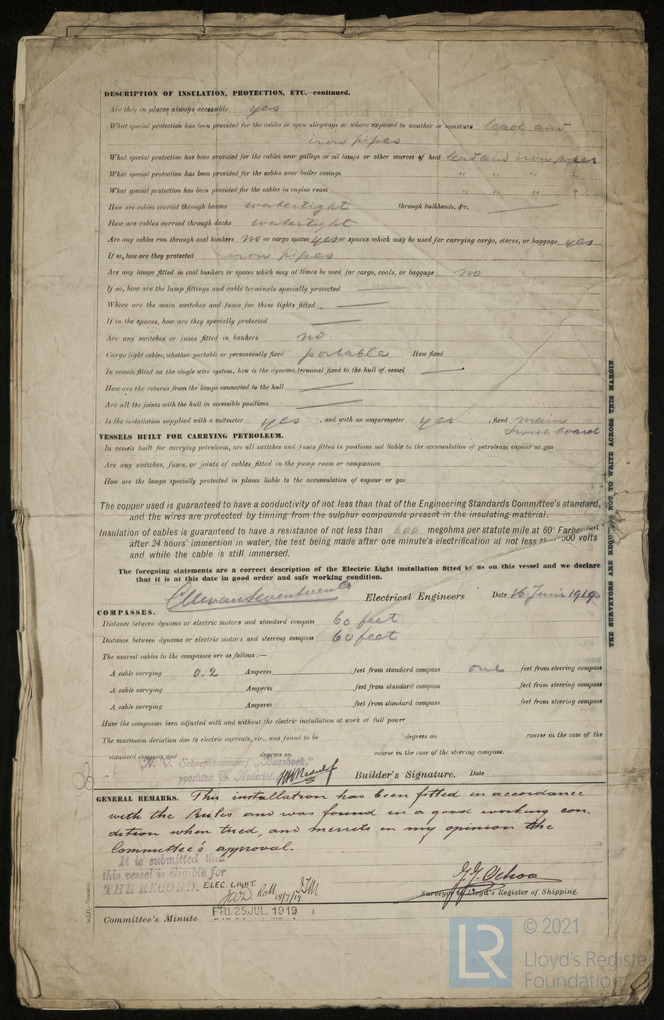 DESCRIPTION OF INSULATION, PROTECTION, ETC.—continued.
Are they in places always accessible yes
What special protection has been provided for the cables in open alleyways or where exposed to weather or moisture lead and
iron pipes
What special protection has been provided for the cables near galleys or oil lamps or other sources of heat lead and iron pipes
What special protection has been provided for the cables near boiler casings " " "
What special protection has been provided for the cables in engine room " " " "
How are cables carried through beams watertight through bulkheads, &c.
How are cables carried through decks watertight
Are any cables run through coal bunkers no or cargo spaces yes or spaces which may be used for carrying cargo, stores, or baggage yes
If so, how are they protected iron pipes
Are any lamps fitted in coal bunkers or spaces which may at times be used for cargo, coals, or baggage no
If so, how are the lamp fittings and cable terminals specially protected
Where are the main switches and fuses for these lights fitted
If in the spaces, how are they specially protected
Are any switches or fuses fitted in bunkers no
Cargo light cables, whether portable or permanently fixed portable How fixed
In vessels fitted on the single wire system, how is the dynamo terminal fixed to the hull of vessel
How are the returns from the lamps connected to the hull
Are all the joints with the hull in accessible positions
Is the installation supplied with a voltmeter yes , and with an amperemeter yes , fixed main
switchboard
VESSELS BUILT FOR CARRYING PETROLEUM.
In vessels built for carrying petroleum, are all switches and fuses fitted in positions not liable to the accumulation of petroleum vapour or gas
Are any switches, fuses, or joints of cables fitted in the pump room or companion
How are the lamps specially protected in places liable to the accumulation of vapour or gas
The copper used is guaranteed to have a conductivity of not less than that of the Engineering Standards Committee's standard,
and the wires are protected by tinning from the sulphur compounds present in the insulating material.
Insulation of cables is guaranteed to have a resistance of not less than 600 megohms per statute mile at 60° Farhen
after 24 hours' immersion in water, the test being made after one minute's electrification at not less than 500 volts
and while the cable is still immersed.
The foregoing statements are a correct description of the Electric Light installation fitted by us on this vessel and we declare
that it is at this date in good order and safe working condition.
Electrical Engineers Date 16 Juni 1919
COMPASSES.
Distance between dynamo or electric motors and standard compass 60 feet
Distance between dynamo or electric motors and steering compass 60 feet
The nearest cables to the compasses are as follows:—
A cable carrying 0.2 Amperes feet from standard compass one feet from steering compass
A cable carrying Amperes feet from standard compass feet from steering compass
A cable carrying Amperes feet from standard compass feet from steering compass
Have the compasses been adjusted with and without the electric installation at work at full power
The maximum deviation due to electric currents, etc., was found to be degrees on course in the case of the
standard compass and degrees on course in the case of the steering compass.
N.V. Scheepsbouwwerf „Baanhoek"
voorheen C. Nederlof. Builder's Signature. Date
GENERAL REMARKS. This installation has been fitted in accordance
with the Rules and was found in a good working con-
dition when tried, and merits in my opinion the
Committee's approval.
It is submitted that
this vessel is eligible for
THE RECORD. ELEC. LIGHT
18/7/19
J.J. Ochoa
Surveyor to Lloyd's Register of Shipping.
Committee's Minute FRI. 25 JUL. 1919
THE SURVEYORS ARE REQUESTED NOT TO WRITE ACROSS THIS MARGIN.
LR © 2021
Lloyd's Register
Foundation